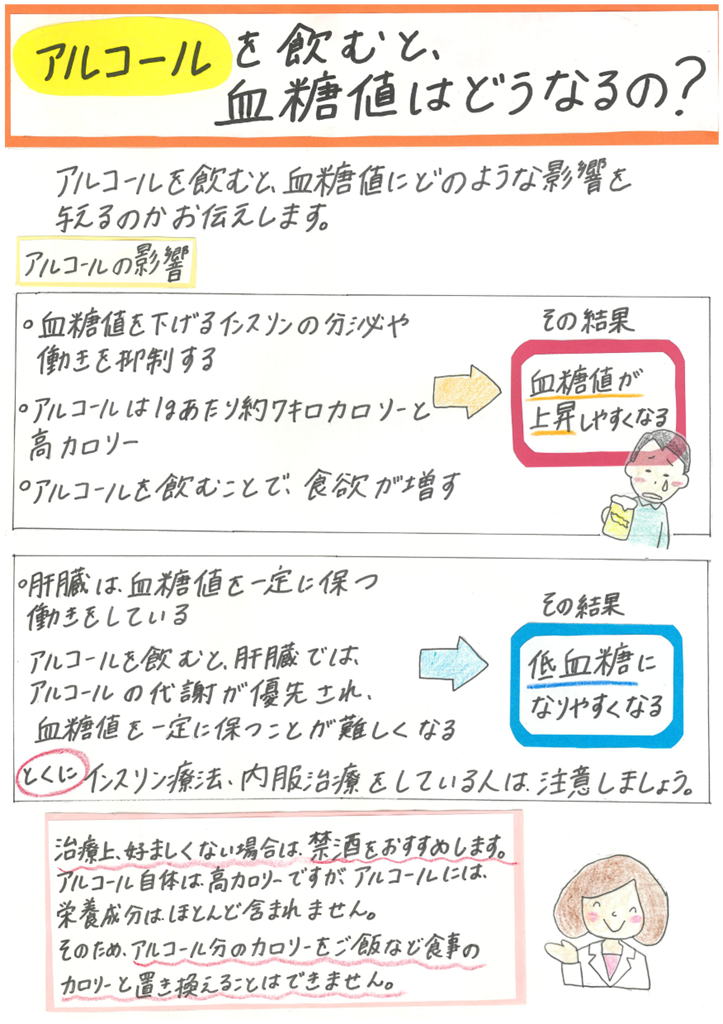 アルコールを飲むと、
血糖値はどうなるの?
アルコールを飲むと、血糖値にどのような影響を
与えるのかお伝えします。
アルコールの影響
○血糖値を下げるインスリンの分泌や
働きを抑制する
○アルコールは1gあたり約7キロカロリーと
高カロリー
○アルコールを飲むことで、食欲が増す
その結果
血糖値が
上昇しやすくなる
○肝臓は、血糖値を一定に保つ
働きをしている
アルコールを飲むと、肝臓では、
アルコールの代謝が優先され、
血糖値を一定に保つことが難しくなる
その結果
低血糖に
なりやすくなる
とくに インスリン療法、内服治療をしている人は、注意しましょう。
治療上、好ましくない場合は、禁酒をおすすめします。
アルコール自体は、高カロリーですが、アルコールには、
栄養成分は、ほとんど含まれません。
そのため、アルコール分のカロリーをご飯など食事の
カロリーと置き換えることはできません。